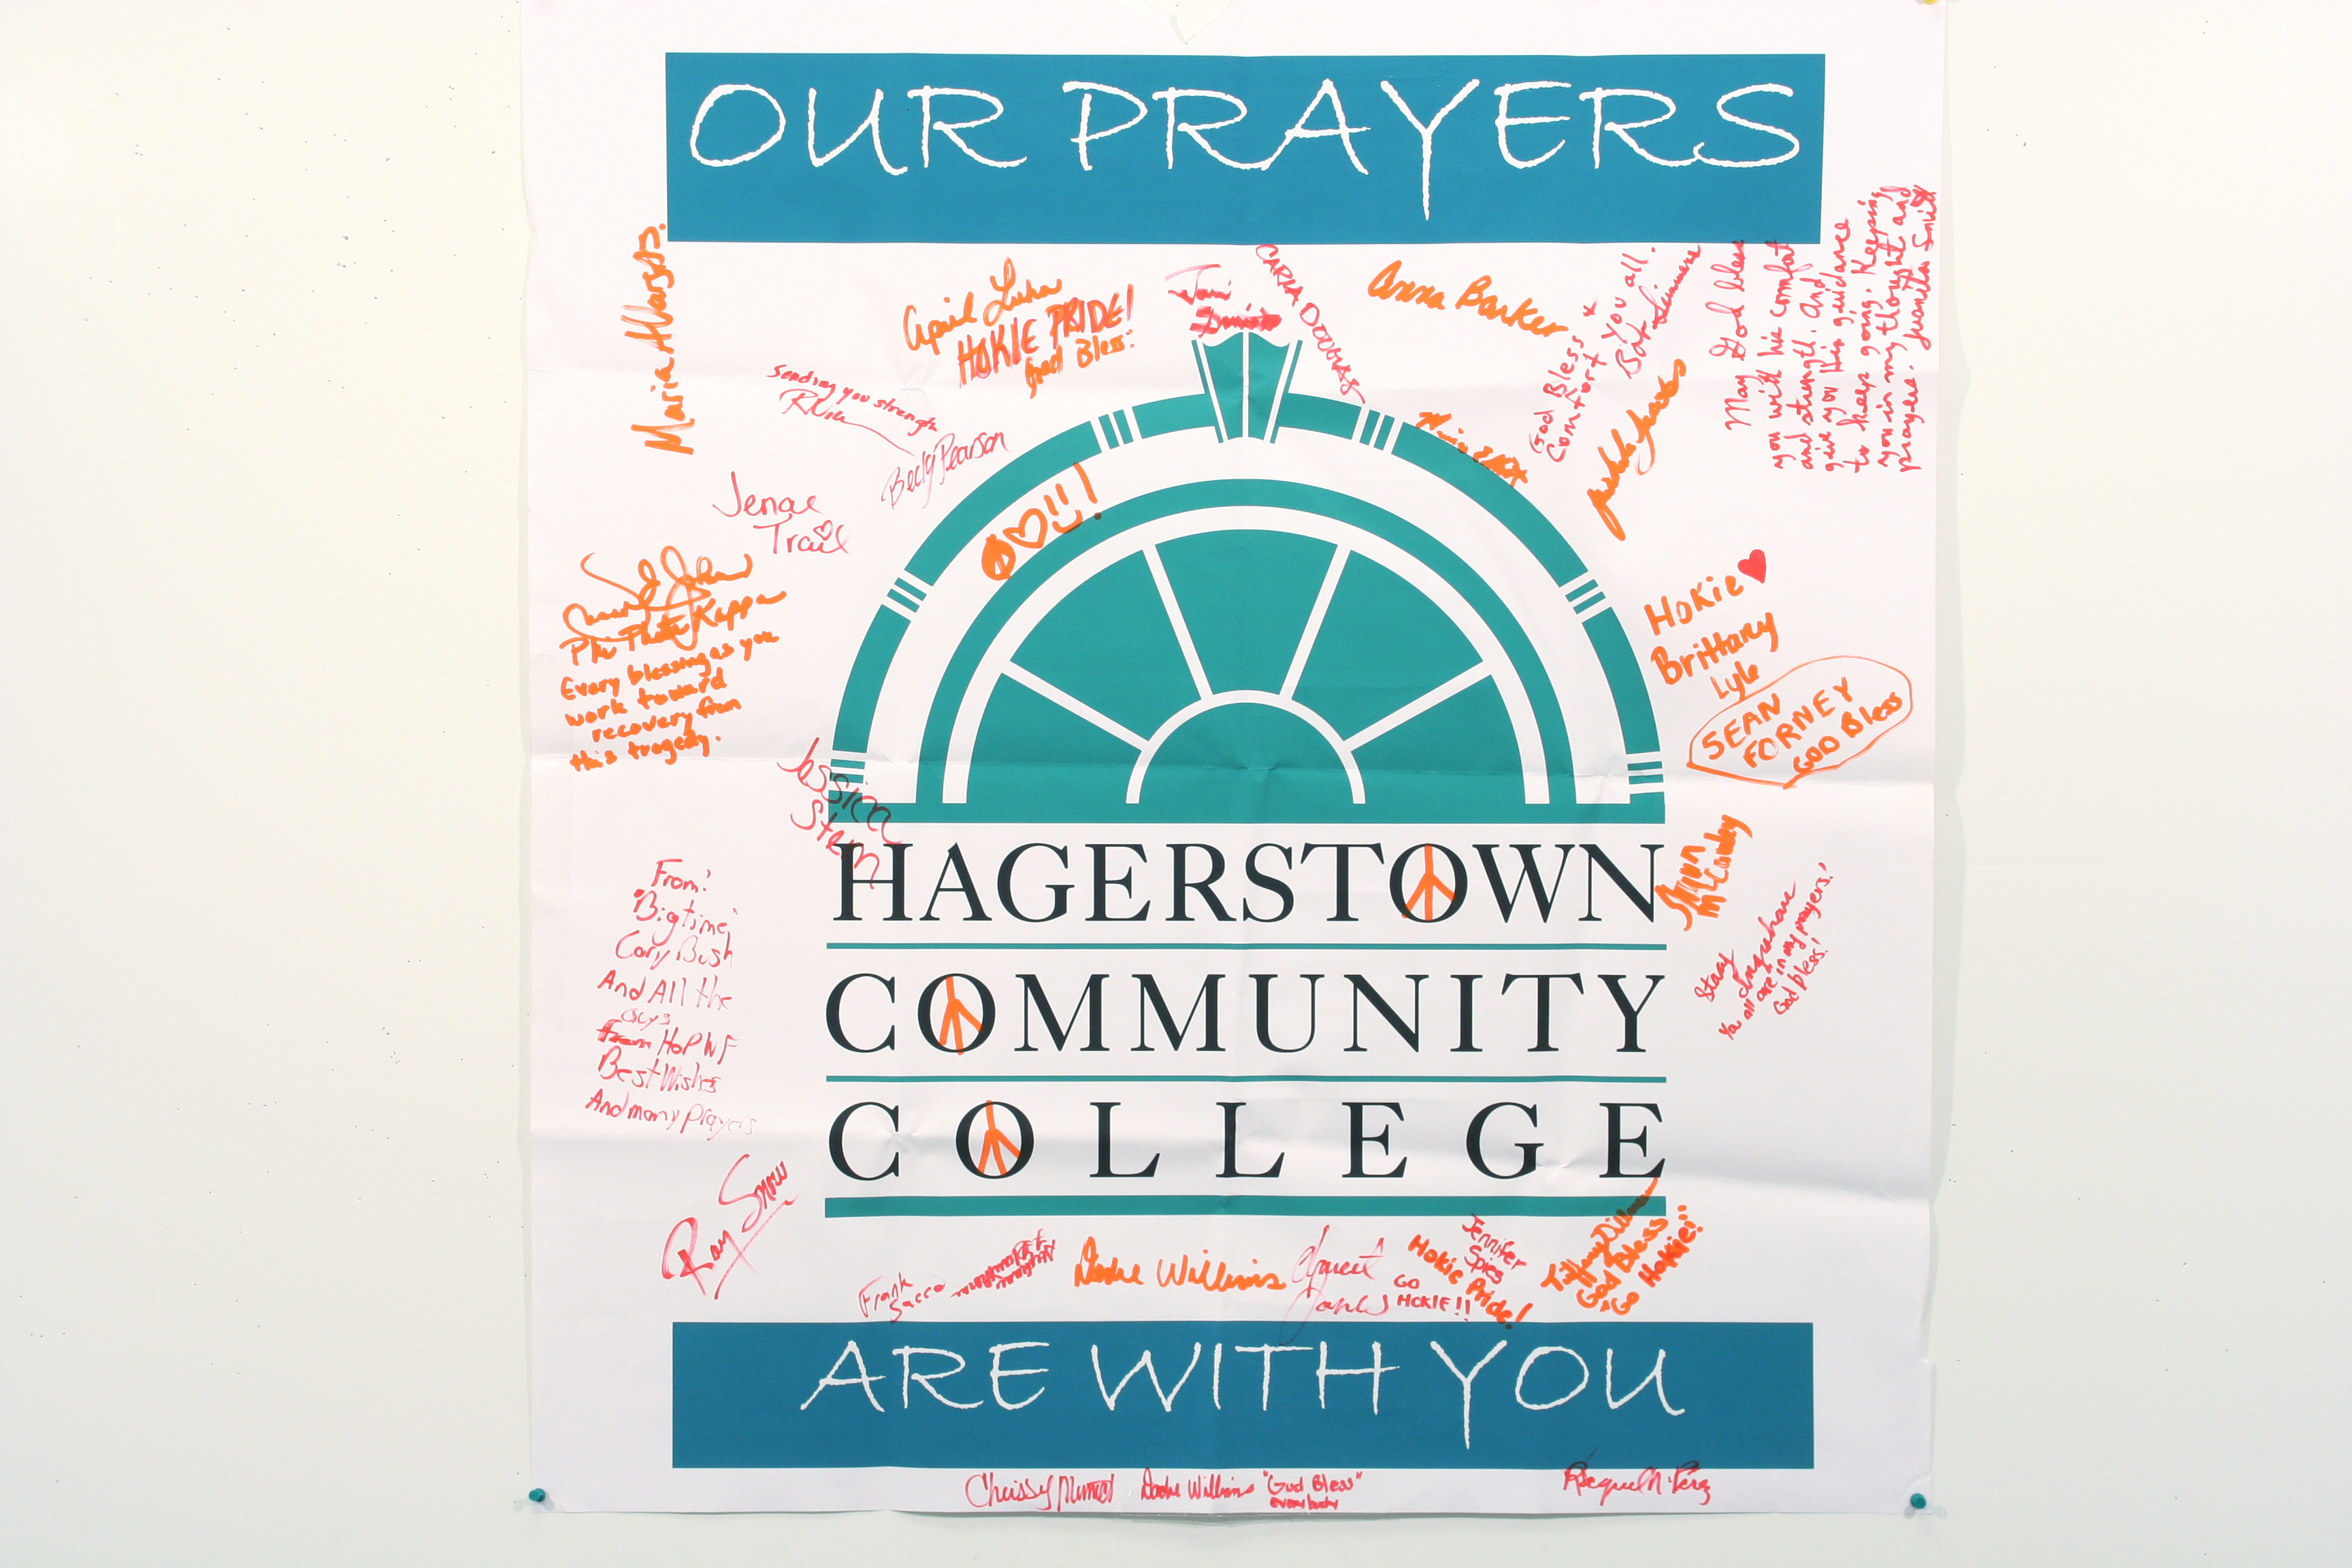 OUR PRAYERS
Maria
April
HOKIE PRIDE!
God Bless
Toni
CARRA DOUGLAS
Anna Barker
God Bless
Comfort
you all.
May God bless
you with his comfort
and strength. And
give you His guidance
to keep going. Keeping
you in my thought and
prayers. Juanita Smith
Sending you strength
Becky Pearson
Jenae
Trail
Phi Theta Kappa
Every blessing as you
work toward
recovery from
this tragedy.
Hokie
Brittany
Lyle
SEAN
FORNEY
GOD Bless
Jessica
Stern
HAGERSTOWN
COMMUNITY
COLLEGE
From:
"Bigtime"
Cory Bush
And All the
Guys
from HoPWF
Best Wishes
And many prayers
Stacy
You all are in my prayers!
God bless!
Ray Snow
Frank
Sacco
Williams
Jennifer
Spies
Hokie Pride!
GO
HOKIE!!
Tiffany
God Bless
Go Hokie!
ARE WITH YOU
Chrissy
Williams "God Bless"
everybody